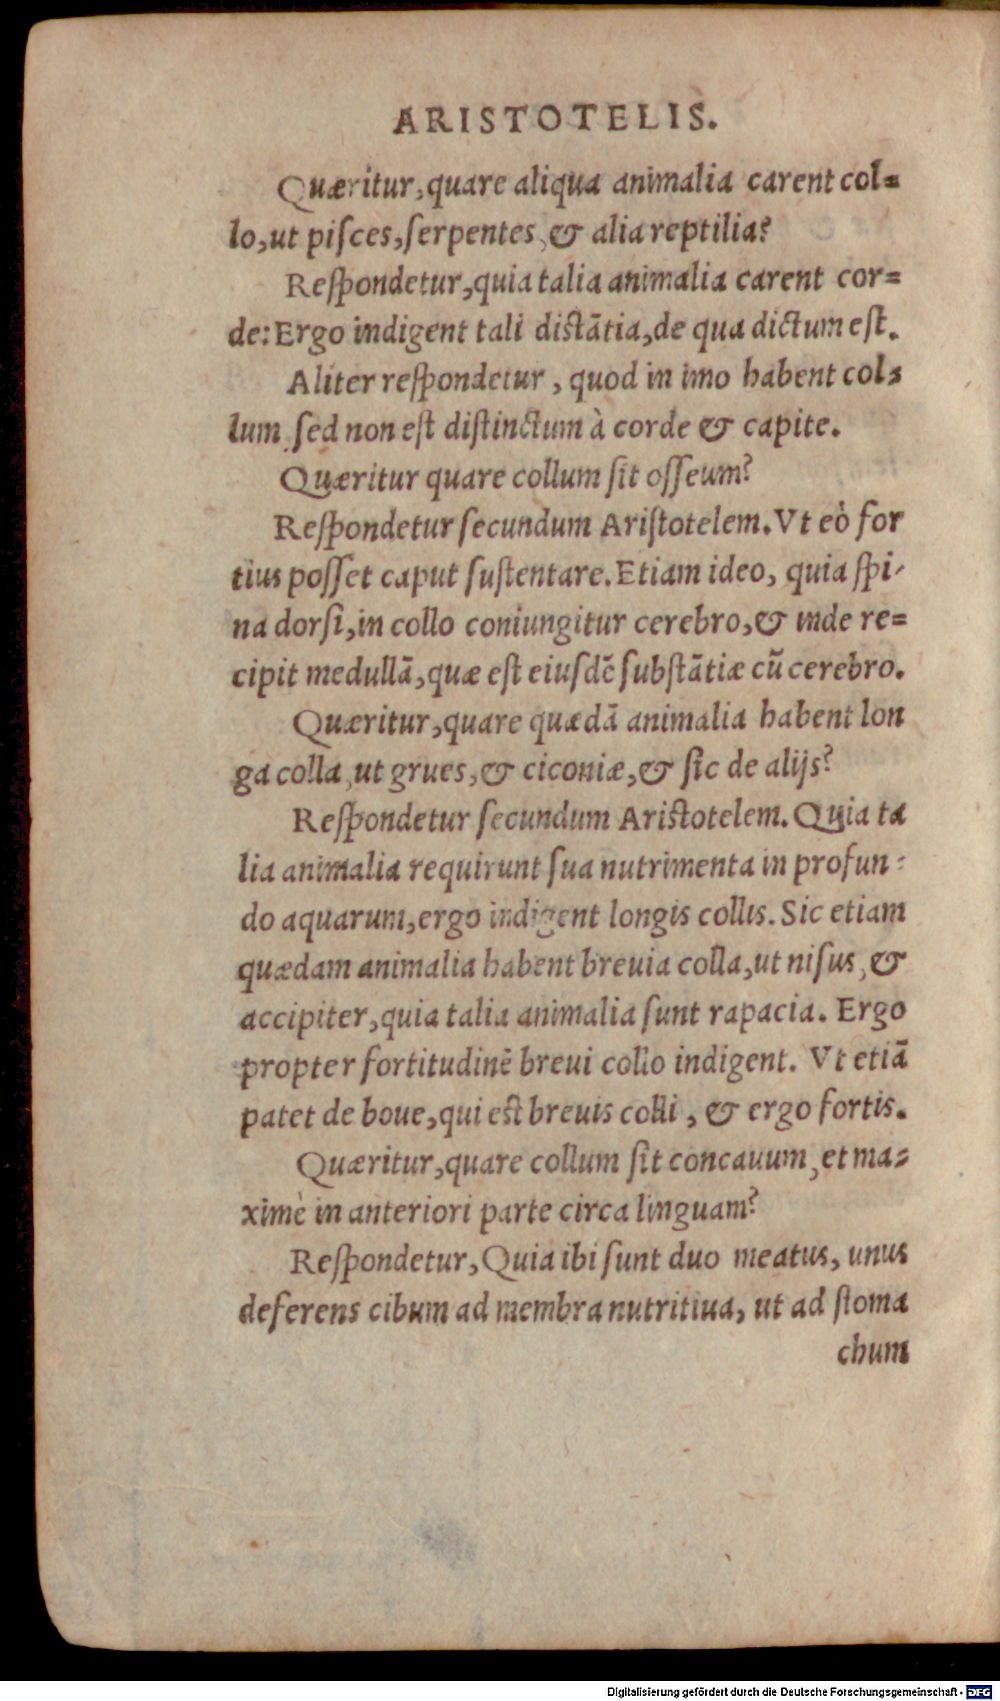 ARISTOTELIS.
Quæritur, quare aliqua animalia carent col=
lo, ut piſces, ſerpentes, & alia reptilia?
Reſpondetur, quia talia animalia carent cor=
de: Ergo indigent tali diſtãtia, de qua dictum eſt.
Aliter reſpondetur, quod in imo habent col=
lum ſed non eſt diſtinctum à corde & capite.
Quæritur quare collum ſit oſſeum?
Reſpondetur ſecundum Ariſtotelem. Vt eò for
tius poſſet caput ſuſtentare. Etiam ideo, quia ſpi-
na dorſi, in collo coniungitur cerebro, & inde re=
cipit medullã, quæ eſt eiuſdẽ ſubſtãtiæ cũ cerebro.
Quæritur, quare quædã animalia habent lon
ga colla, ut grues, & ciconiæ, & ſic de alijs?
Reſpondetur ſecundum Ariſtotelem. Quia ta
lia animalia requirunt ſua nutrimenta in profun=
do aquarum, ergo indigent longis collis. Sic etiam
quædam animalia habent breuia colla, ut niſus, &
accipiter, quia talia animalia ſunt rapacia. Ergo
propter fortitudinẽ breui collo indigent. Vt etiã
patet de boue, qui eſt breuis colli, & ergo fortis.
Quæritur, quare collum ſit concauum, et ma=
ximè in anteriori parte circa linguam?
Reſpondetur, Quia ibi ſunt duo meatus, unus
deferens cibum ad membra nutritiua, ut ad ſtoma
chum
Digitalisierung gefördert durch die Deutsche Forschungsgemeinschaft - DFG